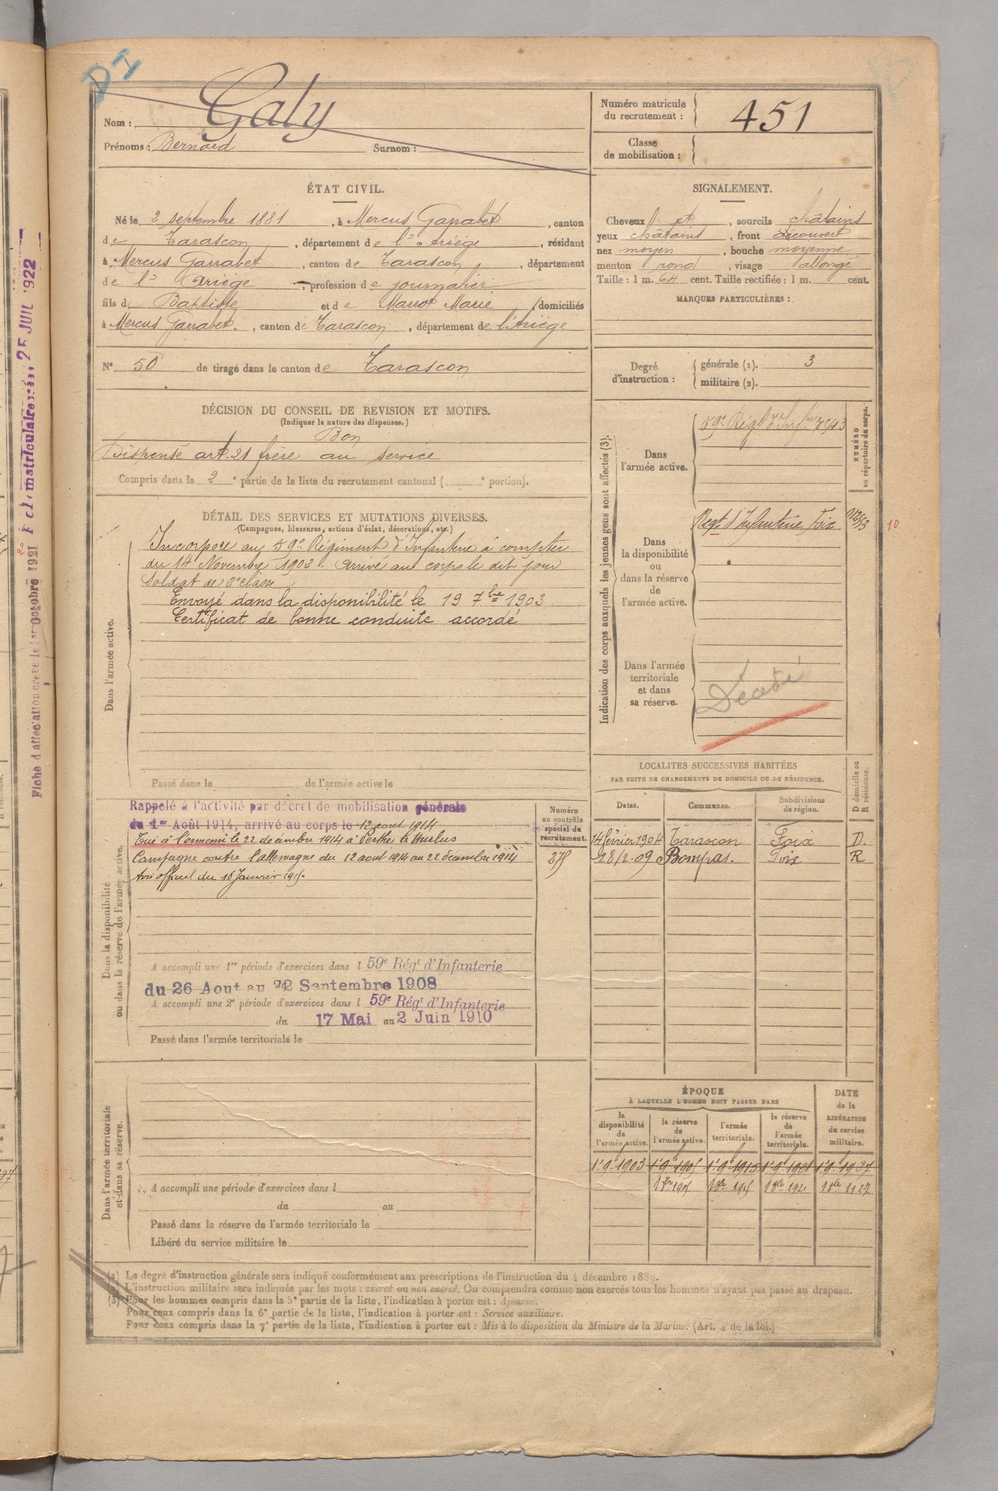 DI
Nom : Galy
Prénoms : Bernard Surnom :
Numéro matricule du recrutement : 451
Classe de mobilisation :
ÉTAT CIVIL.
Né le 2 septembre 1881, à Mercus Garrabet, canton
de Tarascon, département de l'Ariège, résidant
à Mercus Garrabet, canton de Tarascon, département
de l'Ariège, profession de journalier
fils de Baptiste et de Marrot Marie, domiciliés
à Mercus Garrabet, canton de Tarascon, département de l'Ariège
N° 50 de tirage dans le canton de Tarascon
SIGNALEMENT.
Cheveux et, sourcils châtains
yeux châtains, front découvert
nez moyen, bouche moyenne
menton rond, visage allongé
Taille : 1 m. 64 cent. Taille rectifiée : 1 m. cent.
MARQUES PARTICULIÈRES :
Degré d'instruction : générale (1). 3
militaire (2).
DÉCISION DU CONSEIL DE REVISION ET MOTIFS.
(Indiquer la nature des dispenses.)
Bon
Dispensé art. 21 frère au service
Compris dans la 2e partie de la liste du recrutement cantonal ( e portion).
DÉTAIL DES SERVICES ET MUTATIONS DIVERSES.
(Campagnes, blessures, actions d'éclat, décorations, etc.)
Dans l'armée active.
Incorporé au 59e Régiment d'Infanterie à compter
du 14 Novembre 1902. Arrivé au corps le dit jour
Soldat de 2e classe
Envoyé dans la disponibilité le 19 7bre 1903
Certificat de bonne conduite accordé
Passé dans la de l'armée active le
Indication des corps auxquels les jeunes gens sont affectés (3).
NUMÉRO au répertoire du corps.
Dans l'armée active.
59e Régt d'Inf
Dans la disponibilité ou dans la réserve de l'armée active.
Régt d'Infanterie Foix
10
Dans l'armée territoriale et dans sa réserve.
Décédé
LOCALITÉS SUCCESSIVES HABITÉES
PAR SUITE DE CHANGEMENTS DE DOMICILE OU DE RÉSIDENCE.
Dates. Communes. Subdivisions de région. D domicile ou R résidence.
14 février 1904 Tarascon Foix D.
28/2 09 Bompas. Foix R
Dans la disponibilité ou dans la réserve de l'armée active.
Numéro au contrôle spécial du recrutement.
Rappelé à l'activité par décret de mobilisation générale
du 1er Août 1914, arrivé au corps le 12 aout 1914
Tué à l'ennemi le 22 décembre 1914 à Perthes les Hurlus
Campagne contre l'allemagne du 12 aout 1914 au 22 décembre 1914
Avis officiel du 16 Janvier 1915.
A accompli une 1re période d'exercices dans l 59e Régt d'Infanterie
du 26 Aout au Septembre 1908
A accompli une 2e période d'exercices dans l 59e Régt d'Infanterie
du 17 Mai au 2 Juin 1910
Passé dans l'armée territoriale le
Dans l'armée territoriale et dans sa réserve.
A accompli une période d'exercices dans l
du au
Passé dans la réserve de l'armée territoriale le
Libéré du service militaire le
ÉPOQUE
À LAQUELLE L'HOMME DOIT PASSER DANS
DATE de la LIBÉRATION du service militaire.
la disponibilité de l'armée active. la réserve de l'armée active. l'armée territoriale. la réserve de l'armée territoriale.
(1) Le degré d'instruction générale sera indiqué conformément aux prescriptions de l'instruction du 4 décembre 1889.
(2) L'instruction militaire sera indiquée par les mots : exercé ou non exercé. On comprendra comme non exercés tous les hommes n'ayant pas passé au drapeau.
(3) Pour les hommes compris dans la 5e partie de la liste, l'indication à porter est : Ajourné.
Pour ceux compris dans la 6e partie de la liste, l'indication à porter est : Service auxiliaire.
Pour ceux compris dans la 7e partie de la liste, l'indication à porter est : Mis à la disposition du Ministre de la Marine. (Art. 4 de la loi.)